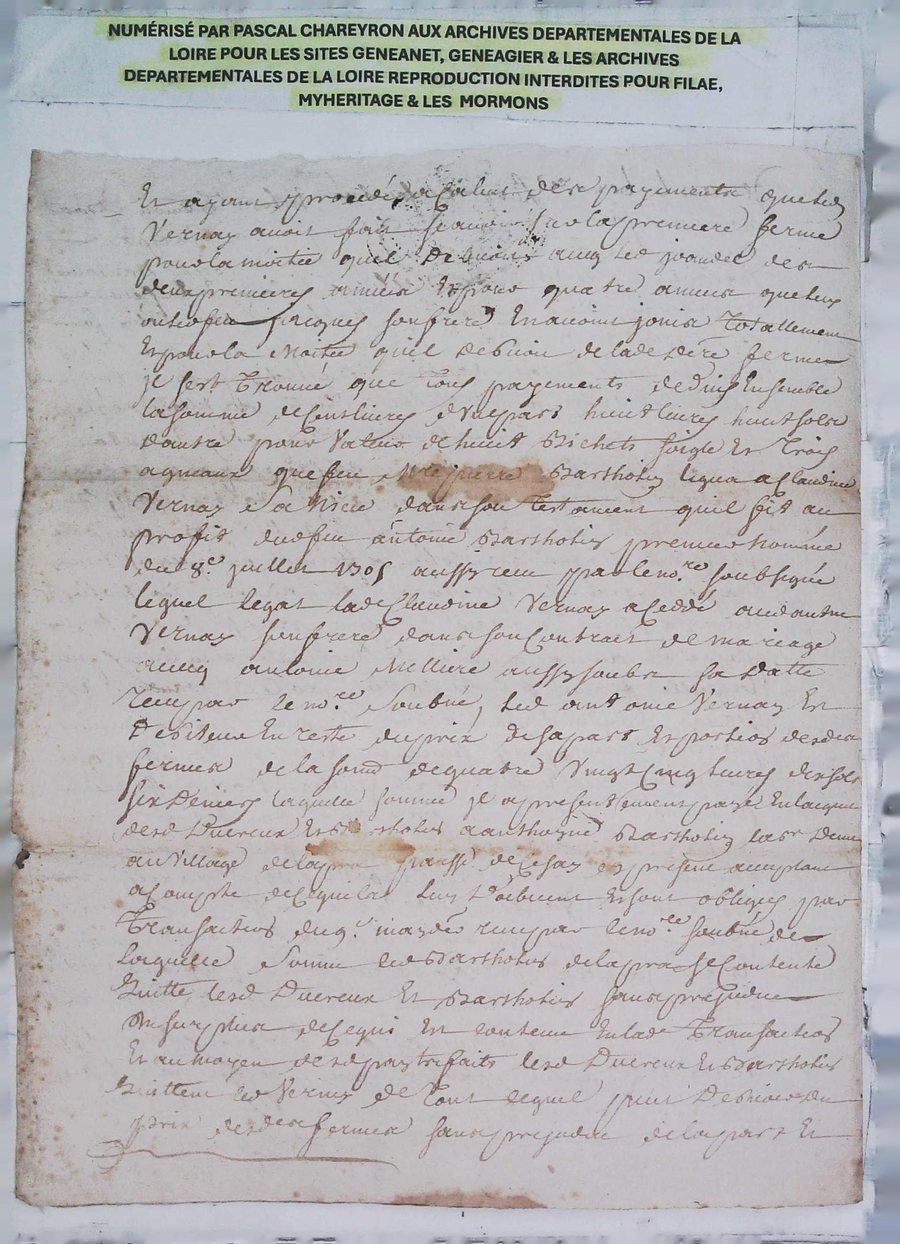 NUMÉRISÉ PAR PASCAL CHAREYRON AUX ARCHIVES DEPARTEMENTALES DE LA
LOIRE POUR LES SITES GENEANET, GENEAGIER & LES ARCHIVES
DEPARTEMENTALES DE LA LOIRE REPRODUCTION INTERDITES POUR FILAE,
MYHERITAGE & LES MORMONS
Et ayant procédé a calcul des payements que led
Vernay avoit fait scavoir sur la premiere ferme
pour la moitié quil debvoit avec led des
deux premieres années Et pour quatre années que led
feu Jacques son frere En avoit jouis Totallement
Et pour la Moitié quil debvoit de lade dere ferme
Il sest Trouvé que Tous payements deduis Ensemble
la somme de Cent livres dune part huit livres huit sols
dautre pour Valeur de huit Bichets soigle Et Trois
agneaux que feu Mre pierre Barthollin legua a Claudine
Vernay Sa Niece dans son Testament quil fit au
profit dud feu antoine Bartholin premier Nommé
du 8e juillet 1705 aussy receu par le nore soubsigné
lequel legat lad Claudine Vernay a Ceddé aud antne
Vernay son frere dans son Contrat de mariage
avecq antoine Milliere aussy soubs sa Datte
receu par le nore Soubné, led antoine Vernay Est
Debiteur En reste du prix de sa part Et portion desd
fermes de la somme de quatre Vingt Cinq livres dix sols
six Deniers laquelle somme Il a presentement payé En lacquit
desd Ducreux Et Bartholin a anthoyne Bartholin labr Demt
au Village de la pra parsse de Cesay Et present acceptant
a Compte de Ce que les luy doibvent Et sont obligés par
Transaction du 9e receu par le nore soubné de
Laquelle Somme led Bartholin de la pra se Contente
Quitte lesd Ducreux Et Bartholin sans prejudice
du surplus de Ce qui Est Contenu En lade Transaction
Et au moyen desd payts faits lesd Ducreux Et Bartholin
Quittent led Vernay de Tout Ce quil peut Debvoir du
prix desdes fermes sans prejudice de la part Et